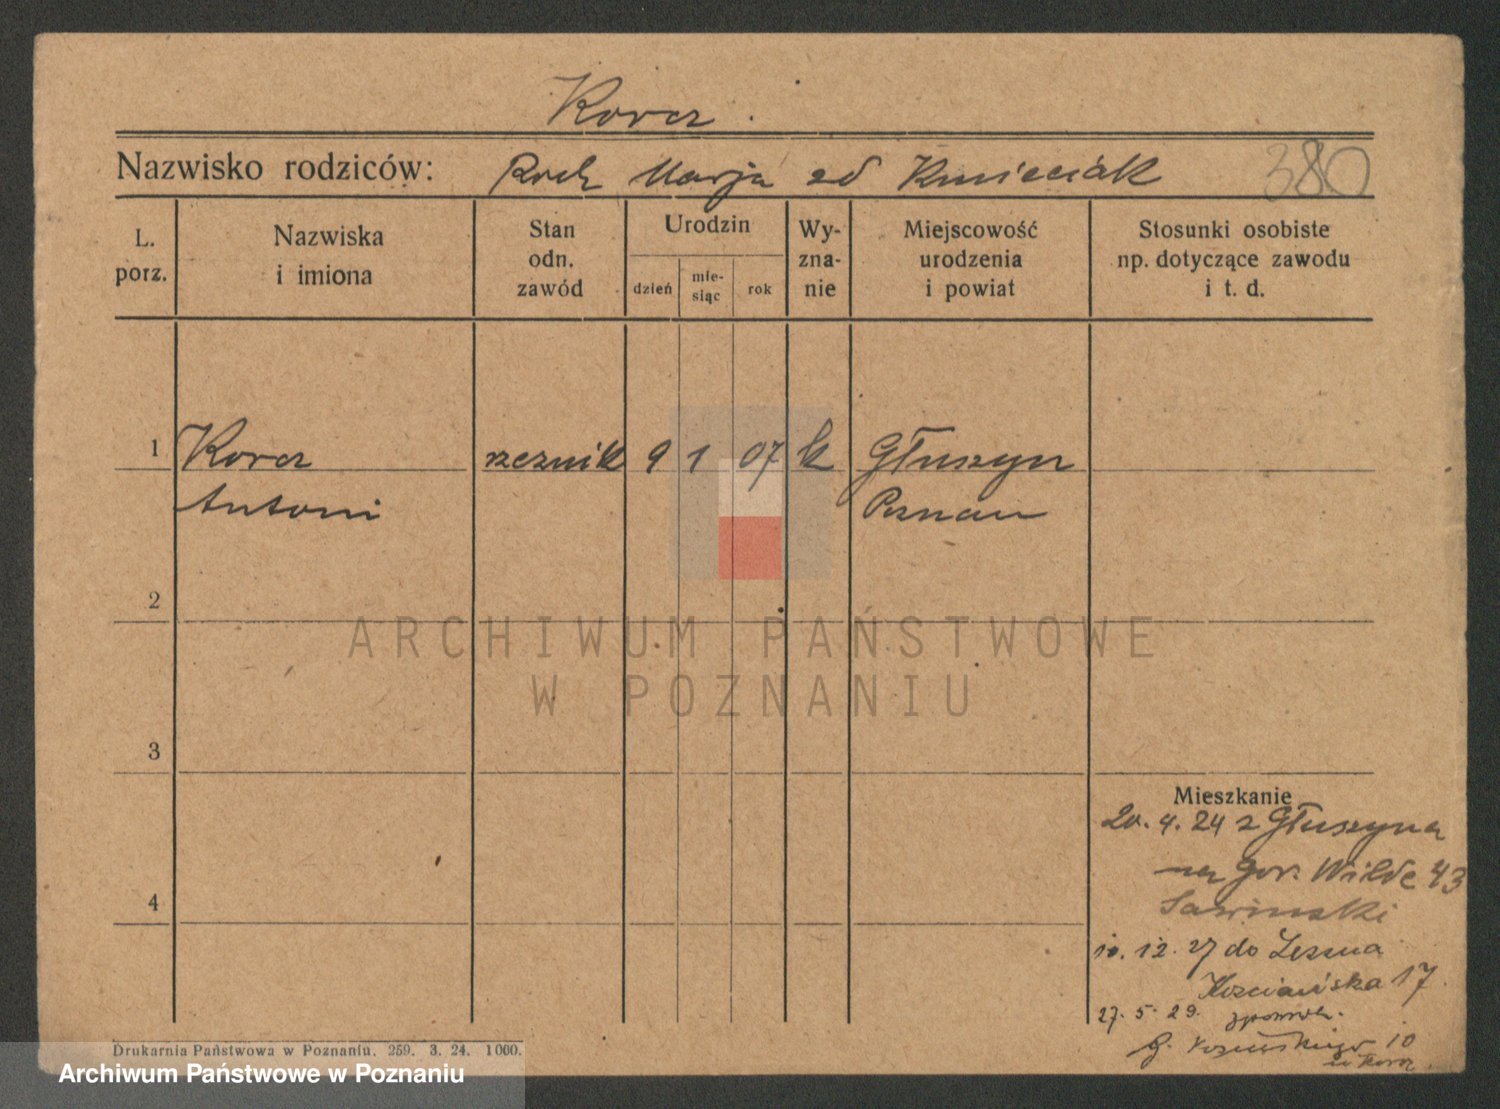 Korcz.
Nazwisko rodziców: Roch Marja od Kmieciak 380
L. porz.
Nazwiska i imiona
Stan odn. zawód
Urodzin
dzień
mie-siąc
rok
Wy-zna-nie
Miejscowość urodzenia i powiat
Stosunki osobiste np. dotyczące zawodu i t. d.
1 Korcz rzeznik 9 1 07 k Głuszyn
Antoni Poznan
2
ARCHIWUM PAŃSTWOWE
W POZNANIU
3
Mieszkanie
20. 4. 24 z Głuszyna
na Gor. Wilde 43
4
10. 12. 27 do Leszna
Kosciańska 17
27. 5. 29.
10
Drukarnia Państwowa w Poznaniu. 259. 3. 24. 1000.
Archiwum Państwowe w Poznaniu